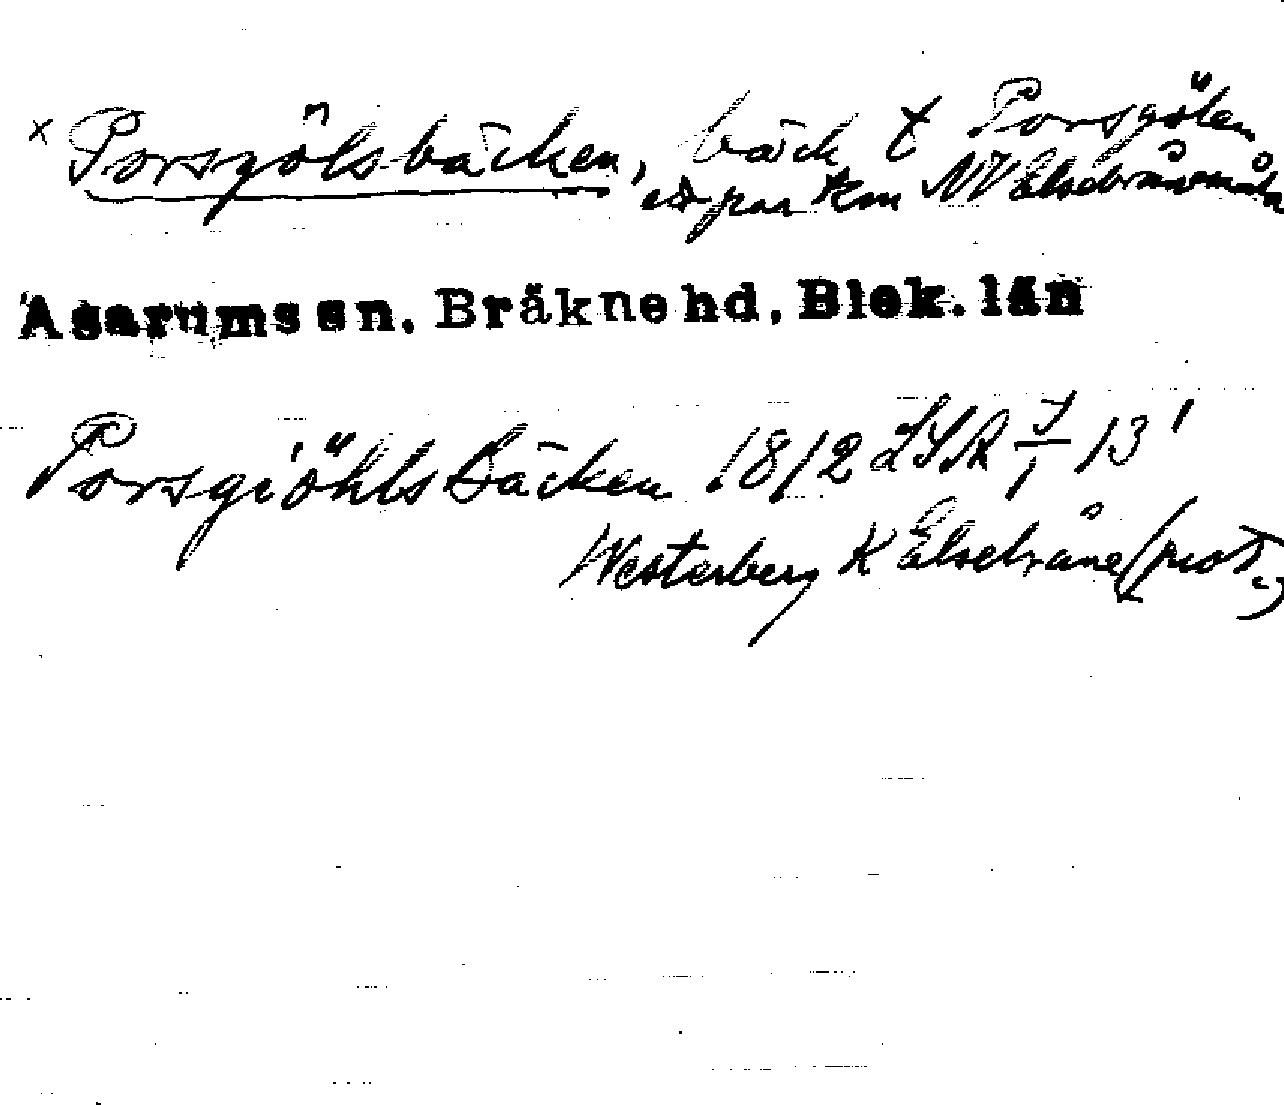 x Porsgölsbäcken, bäck t Porsgölen
par km NV Elsebrånemåla
Asarums sn. Bräkne hd, Blek. län
Porsgiöhls Bäcken 1812 LSA J/1 13'
Westerberg K Elsebråne (prot.)